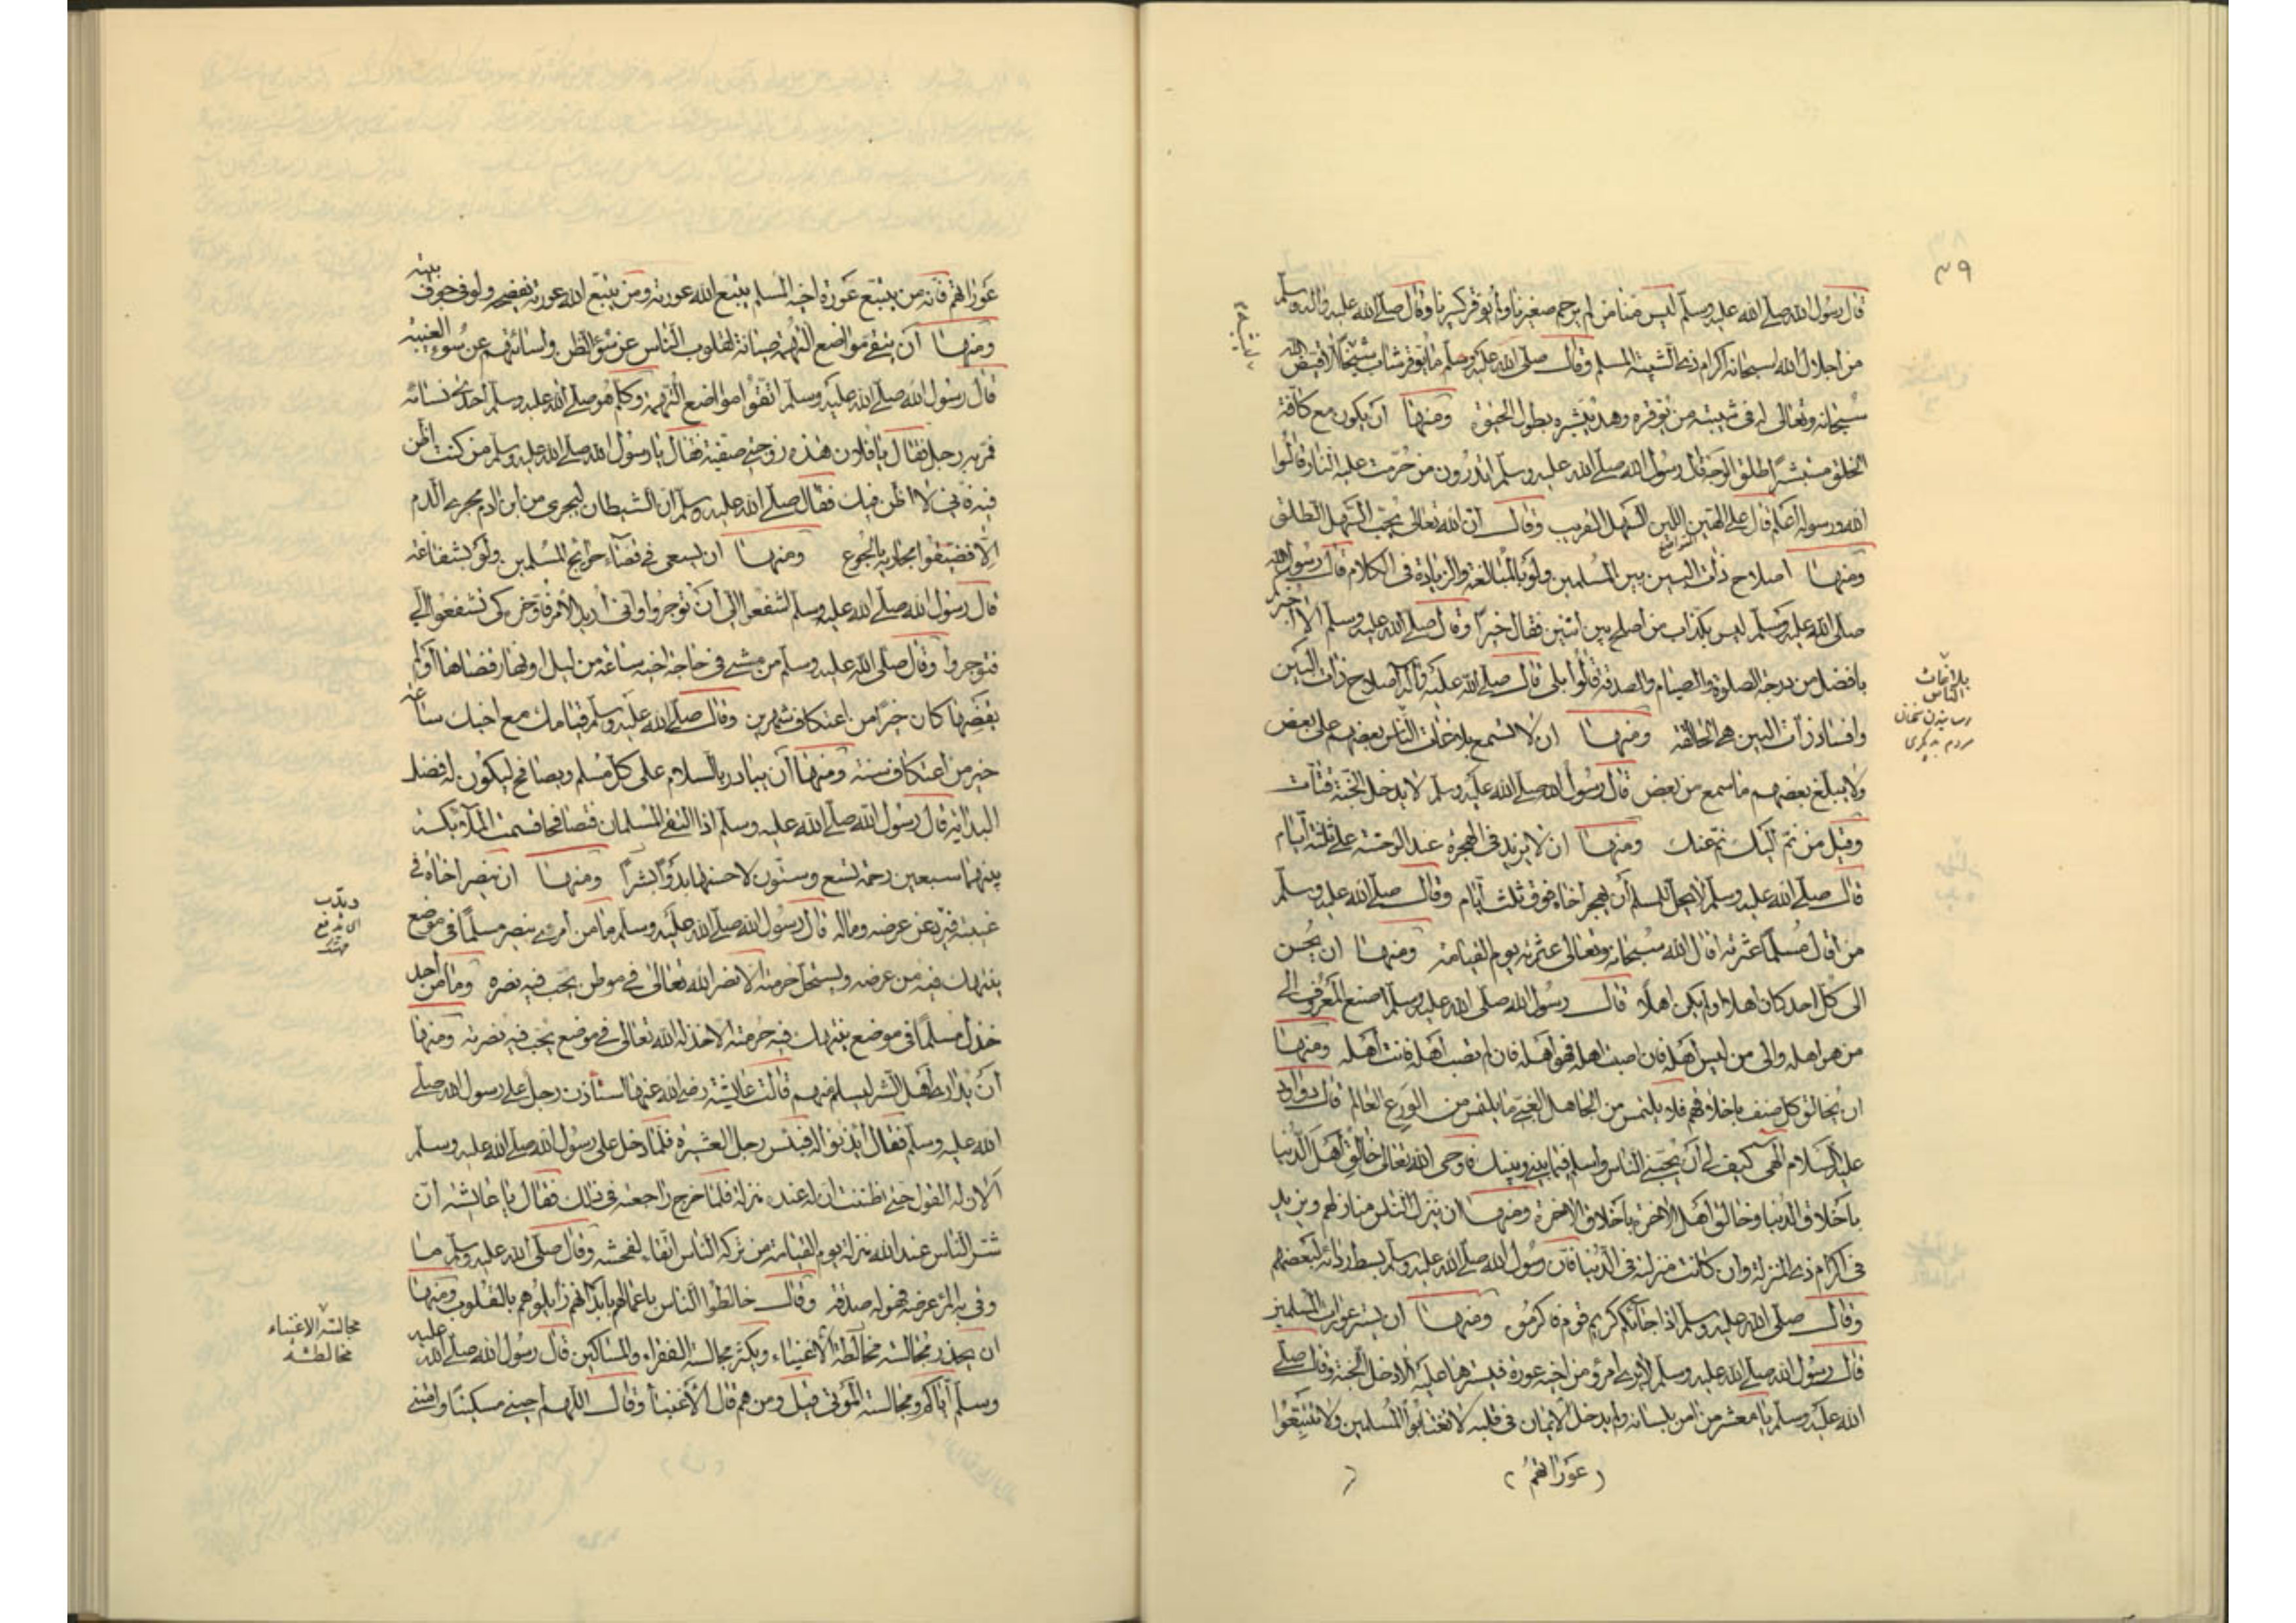 ٣٩
قال رسول الله صلى الله عليه وسلم ليس منا من لم يرحم صغيرنا ولم يوقر كبيرنا وقال صلى الله عليه واله وسلم
من اجلال الله سبحانه اكرام ذى الشيبة المسلم وقال صلى الله عليه وسلم ما يوقر شاب شيخا الا قيض الله
سبحانه وتعالى له فى شيبته من يوقره وهذا يبشره بطول الحيوة ومنها ان يكون مع كافة
الخلق مستبشرا طلق الوجه قال رسول الله صلى الله عليه وسلم اتدرون من حرمت عليه النار قالوا
الله ورسوله اعلم قال على الهين اللين السهل القريب وقال ان الله تعالى يحب السهل الطلق
ومنها اصلاح ذات البين بين المسلمين ولو بالمبالغة والزيادة فى الكلام قال رسول الله
صلى الله عليه وسلم ليس بكذاب من اصلح بين اثنين فقال خيرا وقال صلى الله عليه وسلم الا اخبركم
بافضل من درجة الصلوة والصيام والصدقة قالوا بلى قال صلى الله عليه وآله اصلاح ذات البين
وافساد ذات البين هى الحالقة ومنها ان لا تسمع بلاغات الناس بعضهم على بعض
ولا يبلغ بعضهم ما سمع من بعض قال رسول الله صلى الله عليه وسلم لا يدخل الجنة قتات
وقيل من نم اليك نم عنك ومنها ان لا يزيد فى الهجرة عند الوحشة على ثلثة ايام
قال صلى الله عليه وسلم لا يحل لمسلم أن يهجر اخاه فوق ثلث ايام وقال صلى الله عليه وسلم
من اقال مسلما عثرته اقال الله سبحانه وتعالى عثرته يوم القيامة ومنها ان يحسن
الى كل احد كان اهلا او لم يكن اهلا قال رسول الله صلى الله عليه وسلم اصنع المعروف الى
من هو اهله والى من ليس اهله فان اصبت اهله فهو اهله فان لم تصب اهله فانت اهله ومنها
ان يخالق كل صنف باخلاقهم فلا يلتمس من الجاهل الغبى ما يلتمس من الورع العالم قال داود
عليه السلام الهى كيف لى أن يحبنى الناس واسلم فيما بينى وبينك فاوحى الله تعالى خالق اهل الدنيا
باخلاق الدنيا وخالق اهل الاخرة باخلاق الاخرة ومنها ان ينزل الناس منازلهم ويزيد
فى اكرام ذى المنزلة وان كانت منزلته فى الدنيا فان رسول الله صلى الله عليه وسلم بسط ردائه لبعضهم
وقال صلى الله عليه وسلم اذا جاءكم كريم قوم فاكرموه ومنها ان يستر عورات المسلمين
قال رسول الله صلى الله عليه وسلم لا يرى امرؤ من اخيه عورة فيسترها عليه الا دخل الجنة وقال صلى
الله عليه وسلم يا معشر من امن بلسانه ولم يدخل الايمان فى قلبه لا تغتابوا المسلمين ولا تتبعوا
(عوراتهم)
بلاغات
الناس
رسانيدن سخنان
مردم بديكرى
عوراتهم فانه من يتبع عورة اخيه المسلم يتبع الله عورته ومن يتبع الله عورته يفضحه ولو فى جوف بيته
ومنها أن يتقى مواضع التهمة صيانة لقلوب الناس عن سوء الظن ولسانهم عن سوء الغيبة
قال رسول الله صلى الله عليه وسلم اتقوا مواضع التهمة وكلم هو صلى الله عليه وسلم احدى نسائه
فمر به رجل فقال يا فلان هذه زوجتى صفية فقال يا رسول الله صلى الله عليه وسلم من كنت اظن
فيه فانى لا اظن فيك فقال صلى الله عليه وسلم ان الشيطان ليجرى من ابن ادم مجرى الدم
الا فضيقوا مجاريه بالجوع ومنها ان يسعى فى قضاء حوايج المسلمين ولو بشفاعة
قال رسول الله صلى الله عليه وسلم اشفعوا الى أن توجروا وانى اريد الامر فاوخر كى تشفعوا الى
فتوجروا وقال صلى الله عليه وسلم من مشى فى حاجة اخيه ساعة من ليل او نهار قضاها او لم
يقضها كان خيرا من اعتكاف شهرين وقال صلى الله عليه وسلم قيامك مع اخيك ساعة
خير من اعتكاف سنة ومنها أن يبادر بالسلام على كل مسلم ويصافح ليكون له فضل
البداية قال رسول الله صلى الله عليه وسلم اذا التقى المسلمان فتصافحا قسمت الملائكة
بينهما سبعين رحمة تسع وستون لاحسنهما بدؤا بشرا ومنها ان ينصر اخاه فى
غيبته فيذب عن عرضه وماله قال رسول الله صلى الله عليه وسلم ما من امرء ينصر مسلما فى موضع
ينتهك فيه من عرضه ويستحل حرمته الا نصر الله تعالى فى موطن يحب فيه نصره وما من احد
خذل مسلما فى موضع ينتهك فيه حرمته الا خذله الله تعالى فى موضع يحب فيه نصرته ومنها
أن يدارى اهل الشر ليسلم منهم قالت عايشة رضى الله عنها استأذن رجل على رسول الله صلى
الله عليه وسلم فقال ايذنوا له فبئس رجل العشيرة فلما دخل على رسول الله صلى الله عليه وسلم
الان له القول حتى ظننت ان له عنده منزلة فلما خرج راجعته فى ذلك فقال يا عايشة ان
شر الناس عند الله منزلة يوم القيامة من تركه الناس اتقاء لفحشه وقال صلى الله عليه وسلم ما
وقى به المرء عرضه فهو له صدقة وقال خالطوا الناس باعمالهم بابدانهم زايلوهم بالقلوب ومنها
ان يحذر مجالسة مخالطة الاغنياء ويكثر مجالسة الفقراء والمساكين قال رسول الله صلى الله عليه
وسلم اياكم ومجالسة الموتى قيل ومن هم قال الأغنياء وقال اللهم احينى مسكينا وامتنى
ويذب
اى يدفع
مجالسة الاغنياء
مخالطة